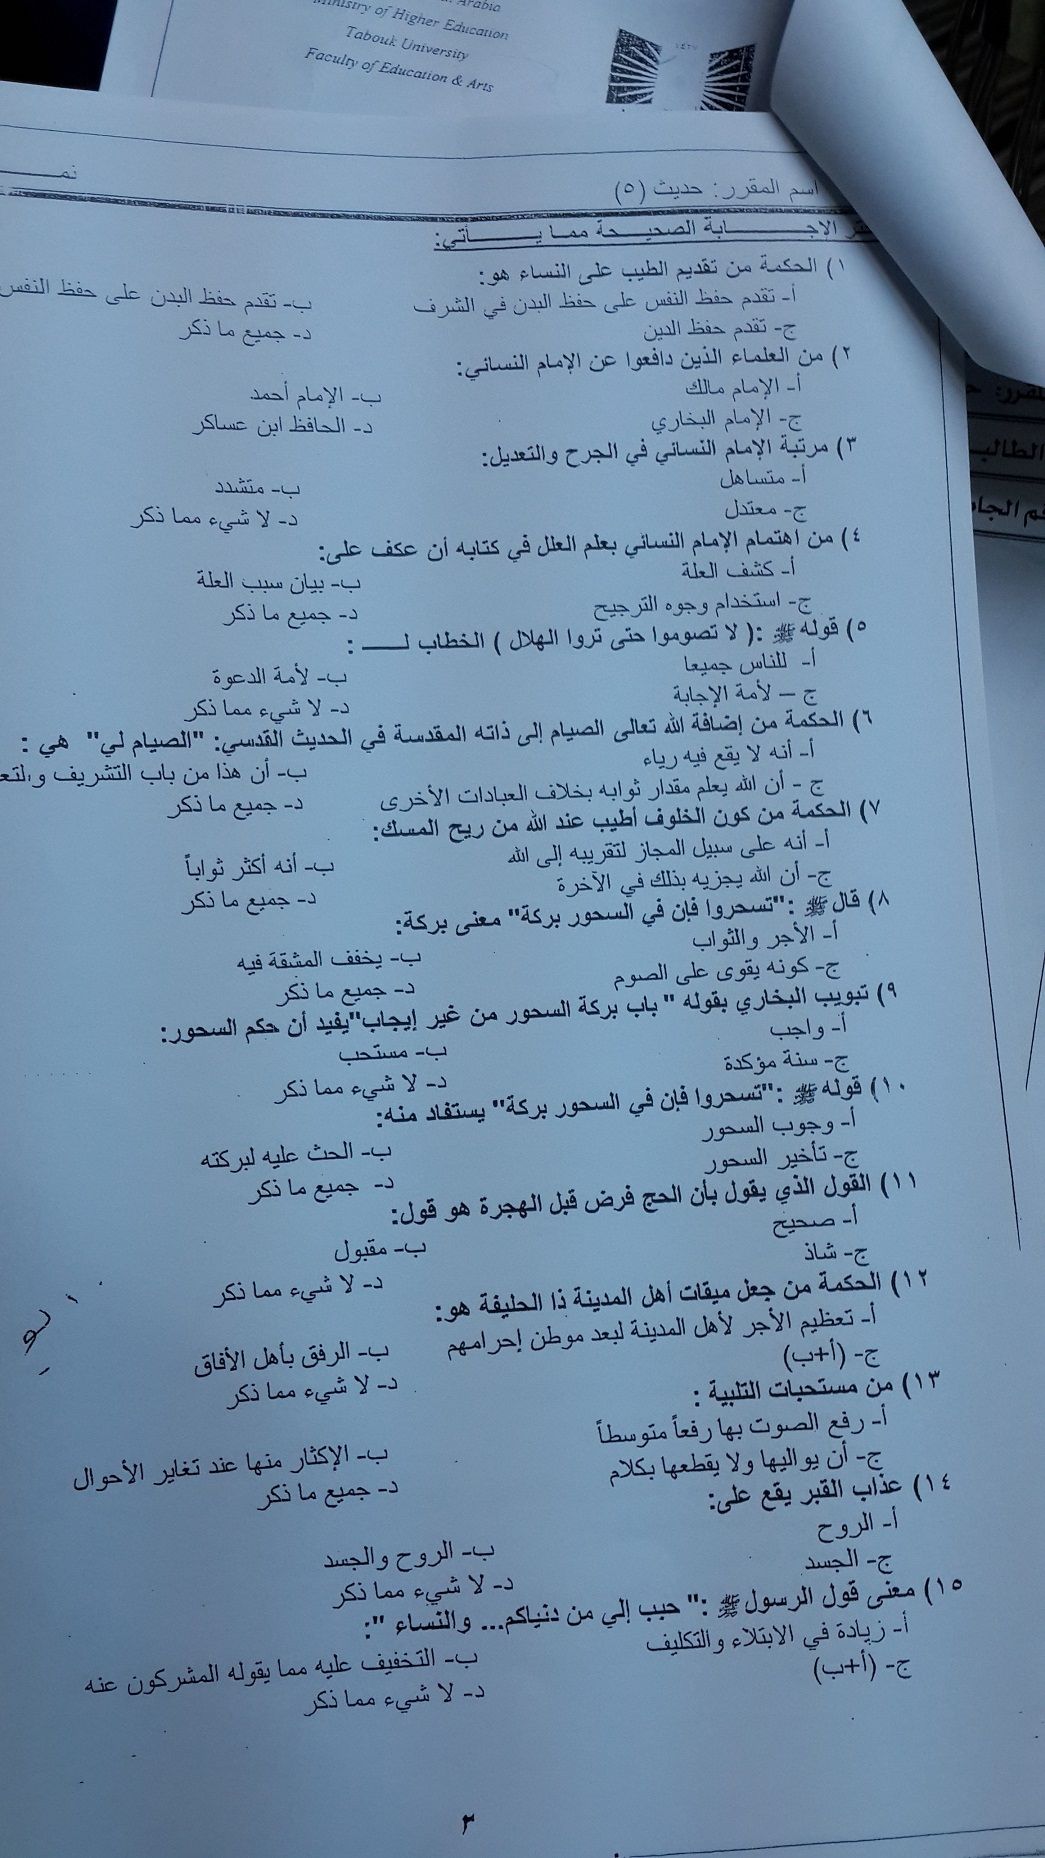 Arabia
Ministry of Higher Education
Tabouk University
Faculty of Education & Arts
اسم المقرر: حديث (٥)
الاجـــابة الصحيـحة ممـا يـــأتي:
١) الحكمة من تقديم الطيب على النساء هو:
أ- تقدم حفظ النفس على حفظ البدن في الشرف ب- تقدم حفظ البدن على حفظ النفس
ج- تقدم حفظ الدين د- جميع ما ذكر
٢) من العلماء الذين دافعوا عن الإمام النسائي:
أ- الإمام مالك ب- الإمام أحمد
ج- الإمام البخاري د- الحافظ ابن عساكر
٣) مرتبة الإمام النسائي في الجرح والتعديل:
أ- متساهل ب- متشدد
ج- معتدل د- لا شيء مما ذكر
٤) من اهتمام الإمام النسائي بعلم العلل في كتابه أن عكف على:
أ- كشف العلة ب- بيان سبب العلة
ج- استخدام وجوه الترجيح د- جميع ما ذكر
٥) قوله ﷺ :( لا تصوموا حتى تروا الهلال ) الخطاب لـــ :
أ- للناس جميعا ب- لأمة الدعوة
ج – لأمة الإجابة د- لا شيء مما ذكر
٦) الحكمة من إضافة الله تعالى الصيام إلى ذاته المقدسة في الحديث القدسي: "الصيام لي" هي :
أ- أنه لا يقع فيه رياء ب- أن هذا من باب التشريف
ج - أن الله يعلم مقدار ثوابه بخلاف العبادات الأخرى د- جميع ما ذكر
٧) الحكمة من كون الخلوف أطيب عند الله من ريح المسك:
أ- أنه على سبيل المجاز لتقريبه إلى الله ب- أنه أكثر ثواباً
ج- أن الله يجزيه بذلك في الآخرة د- جميع ما ذكر
٨) قال ﷺ :"تسحروا فإن في السحور بركة" معنى بركة:
أ- الأجر والثواب ب- يخفف المشقة فيه
ج- كونه يقوى على الصوم د- جميع ما ذكر
٩) تبويب البخاري بقوله " باب بركة السحور من غير إيجاب"يفيد أن حكم السحور:
أ- واجب ب- مستحب
ج- سنة مؤكدة د- لا شيء مما ذكر
١٠) قوله ﷺ :"تسحروا فإن في السحور بركة" يستفاد منه:
أ- وجوب السحور ب- الحث عليه لبركته
ج- تأخير السحور د- جميع ما ذكر
١١) القول الذي يقول بأن الحج فرض قبل الهجرة هو قول:
أ- صحيح ب- مقبول
ج- شاذ د- لا شيء مما ذكر
١٢) الحكمة من جعل ميقات أهل المدينة ذا الحليفة هو:
أ- تعظيم الأجر لأهل المدينة لبعد موطن إحرامهم ب- الرفق بأهل الأفاق
ج- (أ+ب) د- لا شيء مما ذكر
١٣) من مستحبات التلبية :
أ- رفع الصوت بها رفعاً متوسطاً ب- الإكثار منها عند تغاير الأحوال
ج- أن يواليها ولا يقطعها بكلام د- جميع ما ذكر
١٤) عذاب القبر يقع على:
أ- الروح ب- الروح والجسد
ج- الجسد د- لا شيء مما ذكر
١٥) معنى قول الرسول ﷺ :" حبب إلي من دنياكم... والنساء ":
أ- زيادة في الابتلاء والتكليف ب- التخفيف عليه مما يقوله المشركون عنه
ج- (أ+ب) د- لا شيء مما ذكر
٣